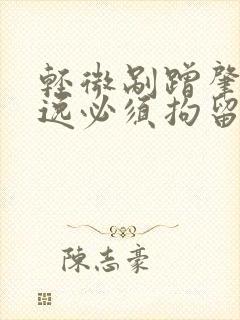 輕微剮蹭肇
逸必須拘留
陳志豪